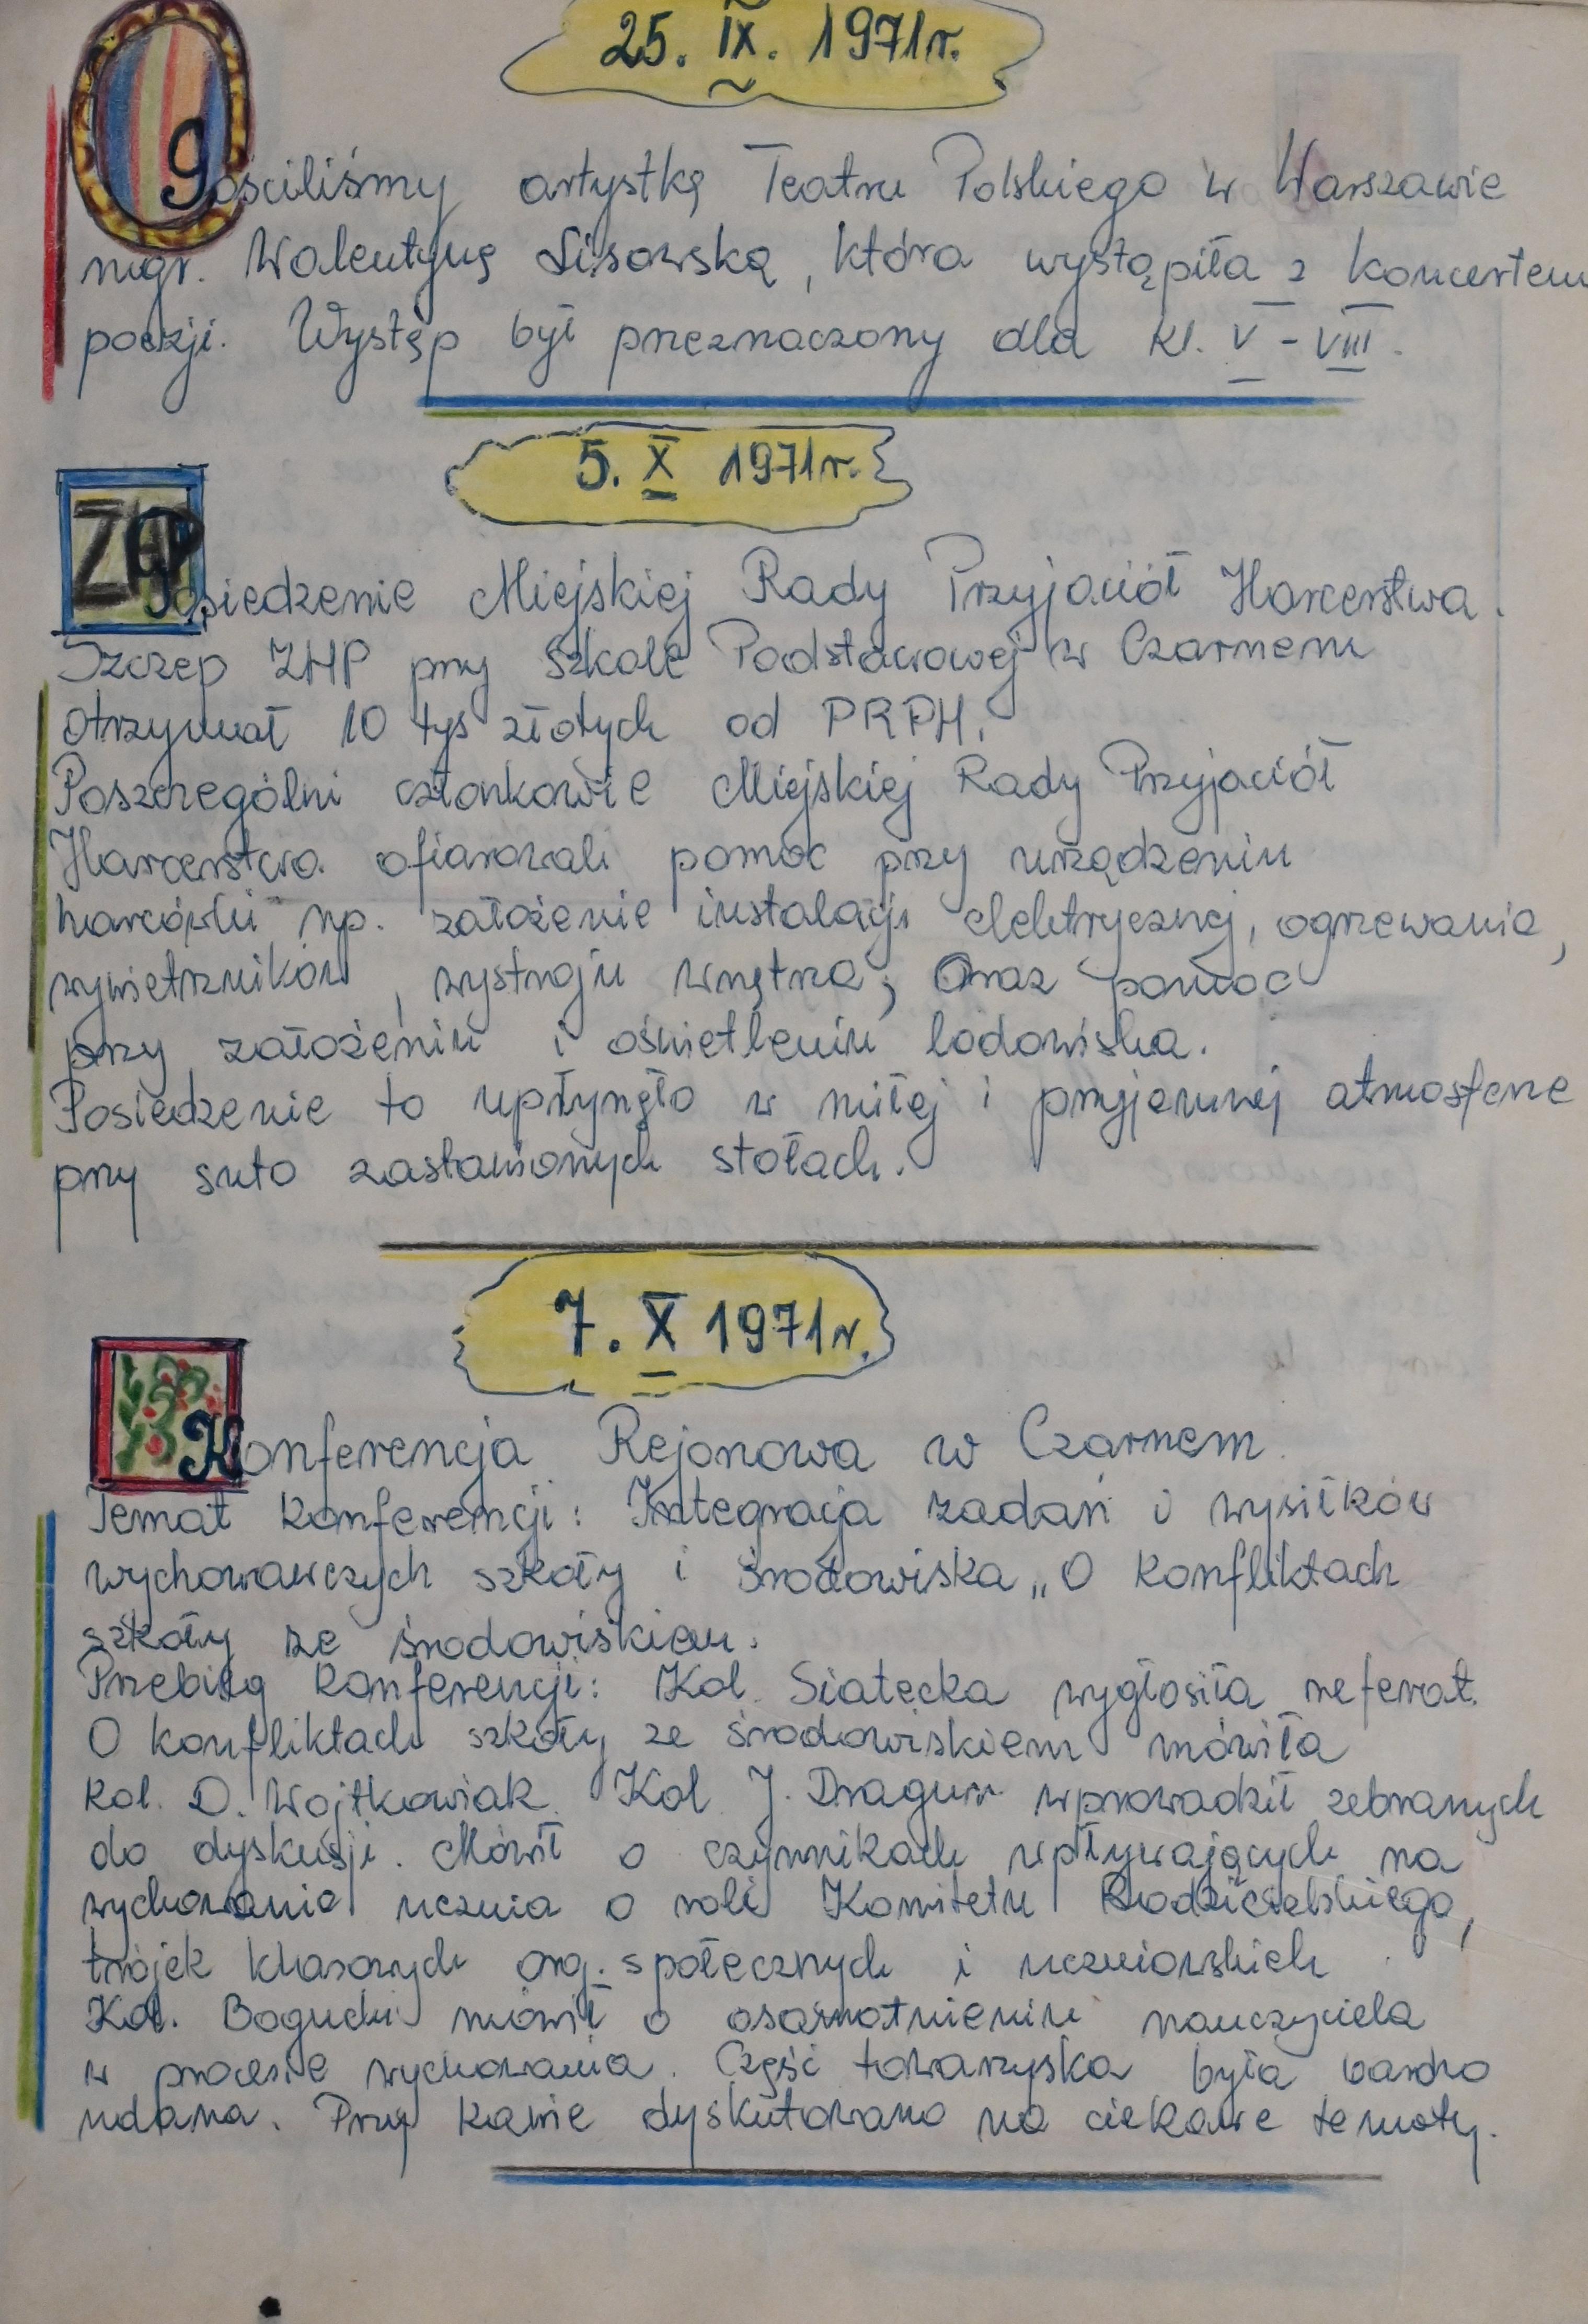 25. IX. 1971r.
Gościliśmy artystkę Teatru Polskiego w Warszawie
mgr. Walentynę Lisowską, która wystąpiła z koncertem
poezji. Występ był przeznaczony dla kl. V - VIII.
5. X 1971r.
ZHP
Posiedzenie Miejskiej Rady Przyjaciół Harcerstwa.
Szczep ZHP przy Szkole Podstawowej w Czarnem
otrzymał 10 tys złotych od PRPH.
Poszczególni członkowie Miejskiej Rady Przyjaciół
Harcerstwa ofiarowali pomoc przy urządzeniu
harcówki np. założenie instalacji elektrycznej, ogrzewania,
wywietrzników, wystroju wnętrza; Oraz pomoc
przy założeniu i oświetleniu lodowiska.
Posiedzenie to upłynęło w miłej i przyjemnej atmosferze
przy suto zastawionych stołach.
7. X 1971r.
Konferencja Rejonowa w Czarnem
Temat konferencji: Integracja zadań i wysiłków
wychowawczych szkoły i środowiska „O konfliktach
szkoły ze środowiskiem.
Przebieg konferencji: Kol. Siatecka wygłosiła referat.
O konfliktach szkoły ze środowiskiem mówiła
kol. D. Wojtkowiak. Kol J. Dragun wprowadził zebranych
do dyskusji. Mówił o czynnikach wpływających na
wychowanie ucznia o roli Komitetu Rodzicielskiego,
trójek klasowych org. społecznych i uczniowskich
Kol. Bogucki mówił o osamotnieniu nauczyciela
w procesie wychowania. Część towarzyska była bardzo
udana. Przy kawie dyskutowano na ciekawe tematy.